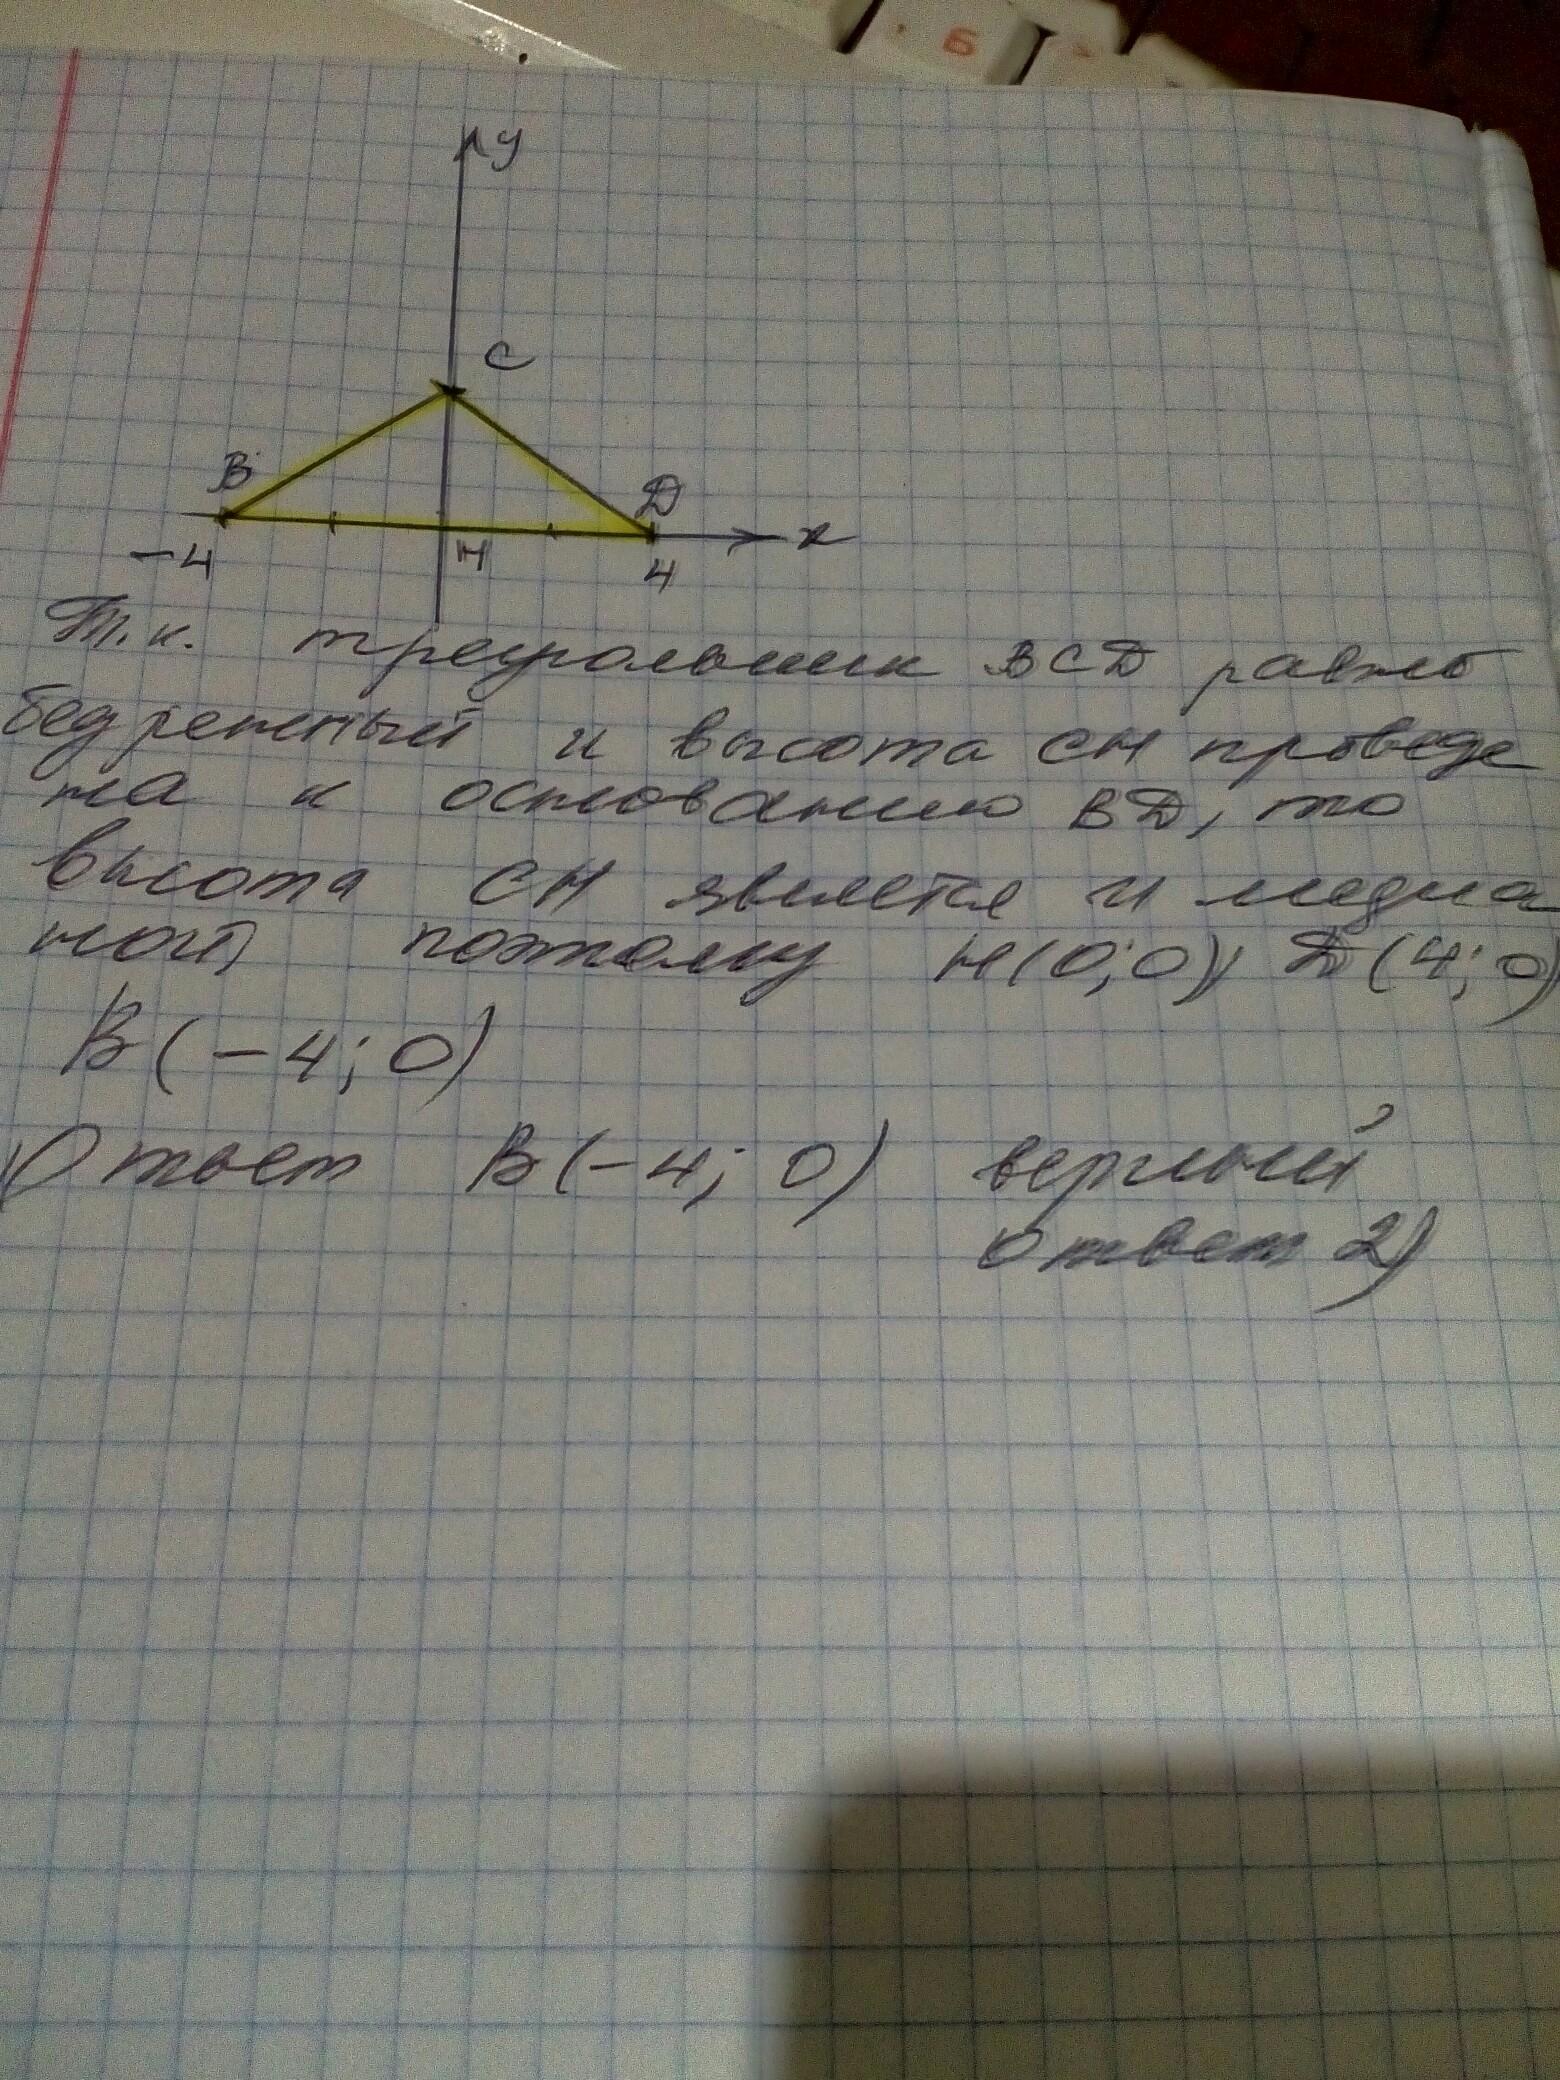 Б
у
С
В
D
х
-4
Н
4
Т.к. треугольник BCD равно
бедренный и высота СН проведе
на к основанию BD, то
высота СН является и медиа
ной поэтому Н(0;0); D(4;0)
В(-4;0)
Ответ В(-4; 0) верный
ответ 2)